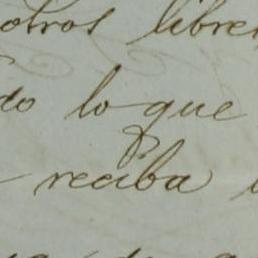 otros libre
do lo que
reciba